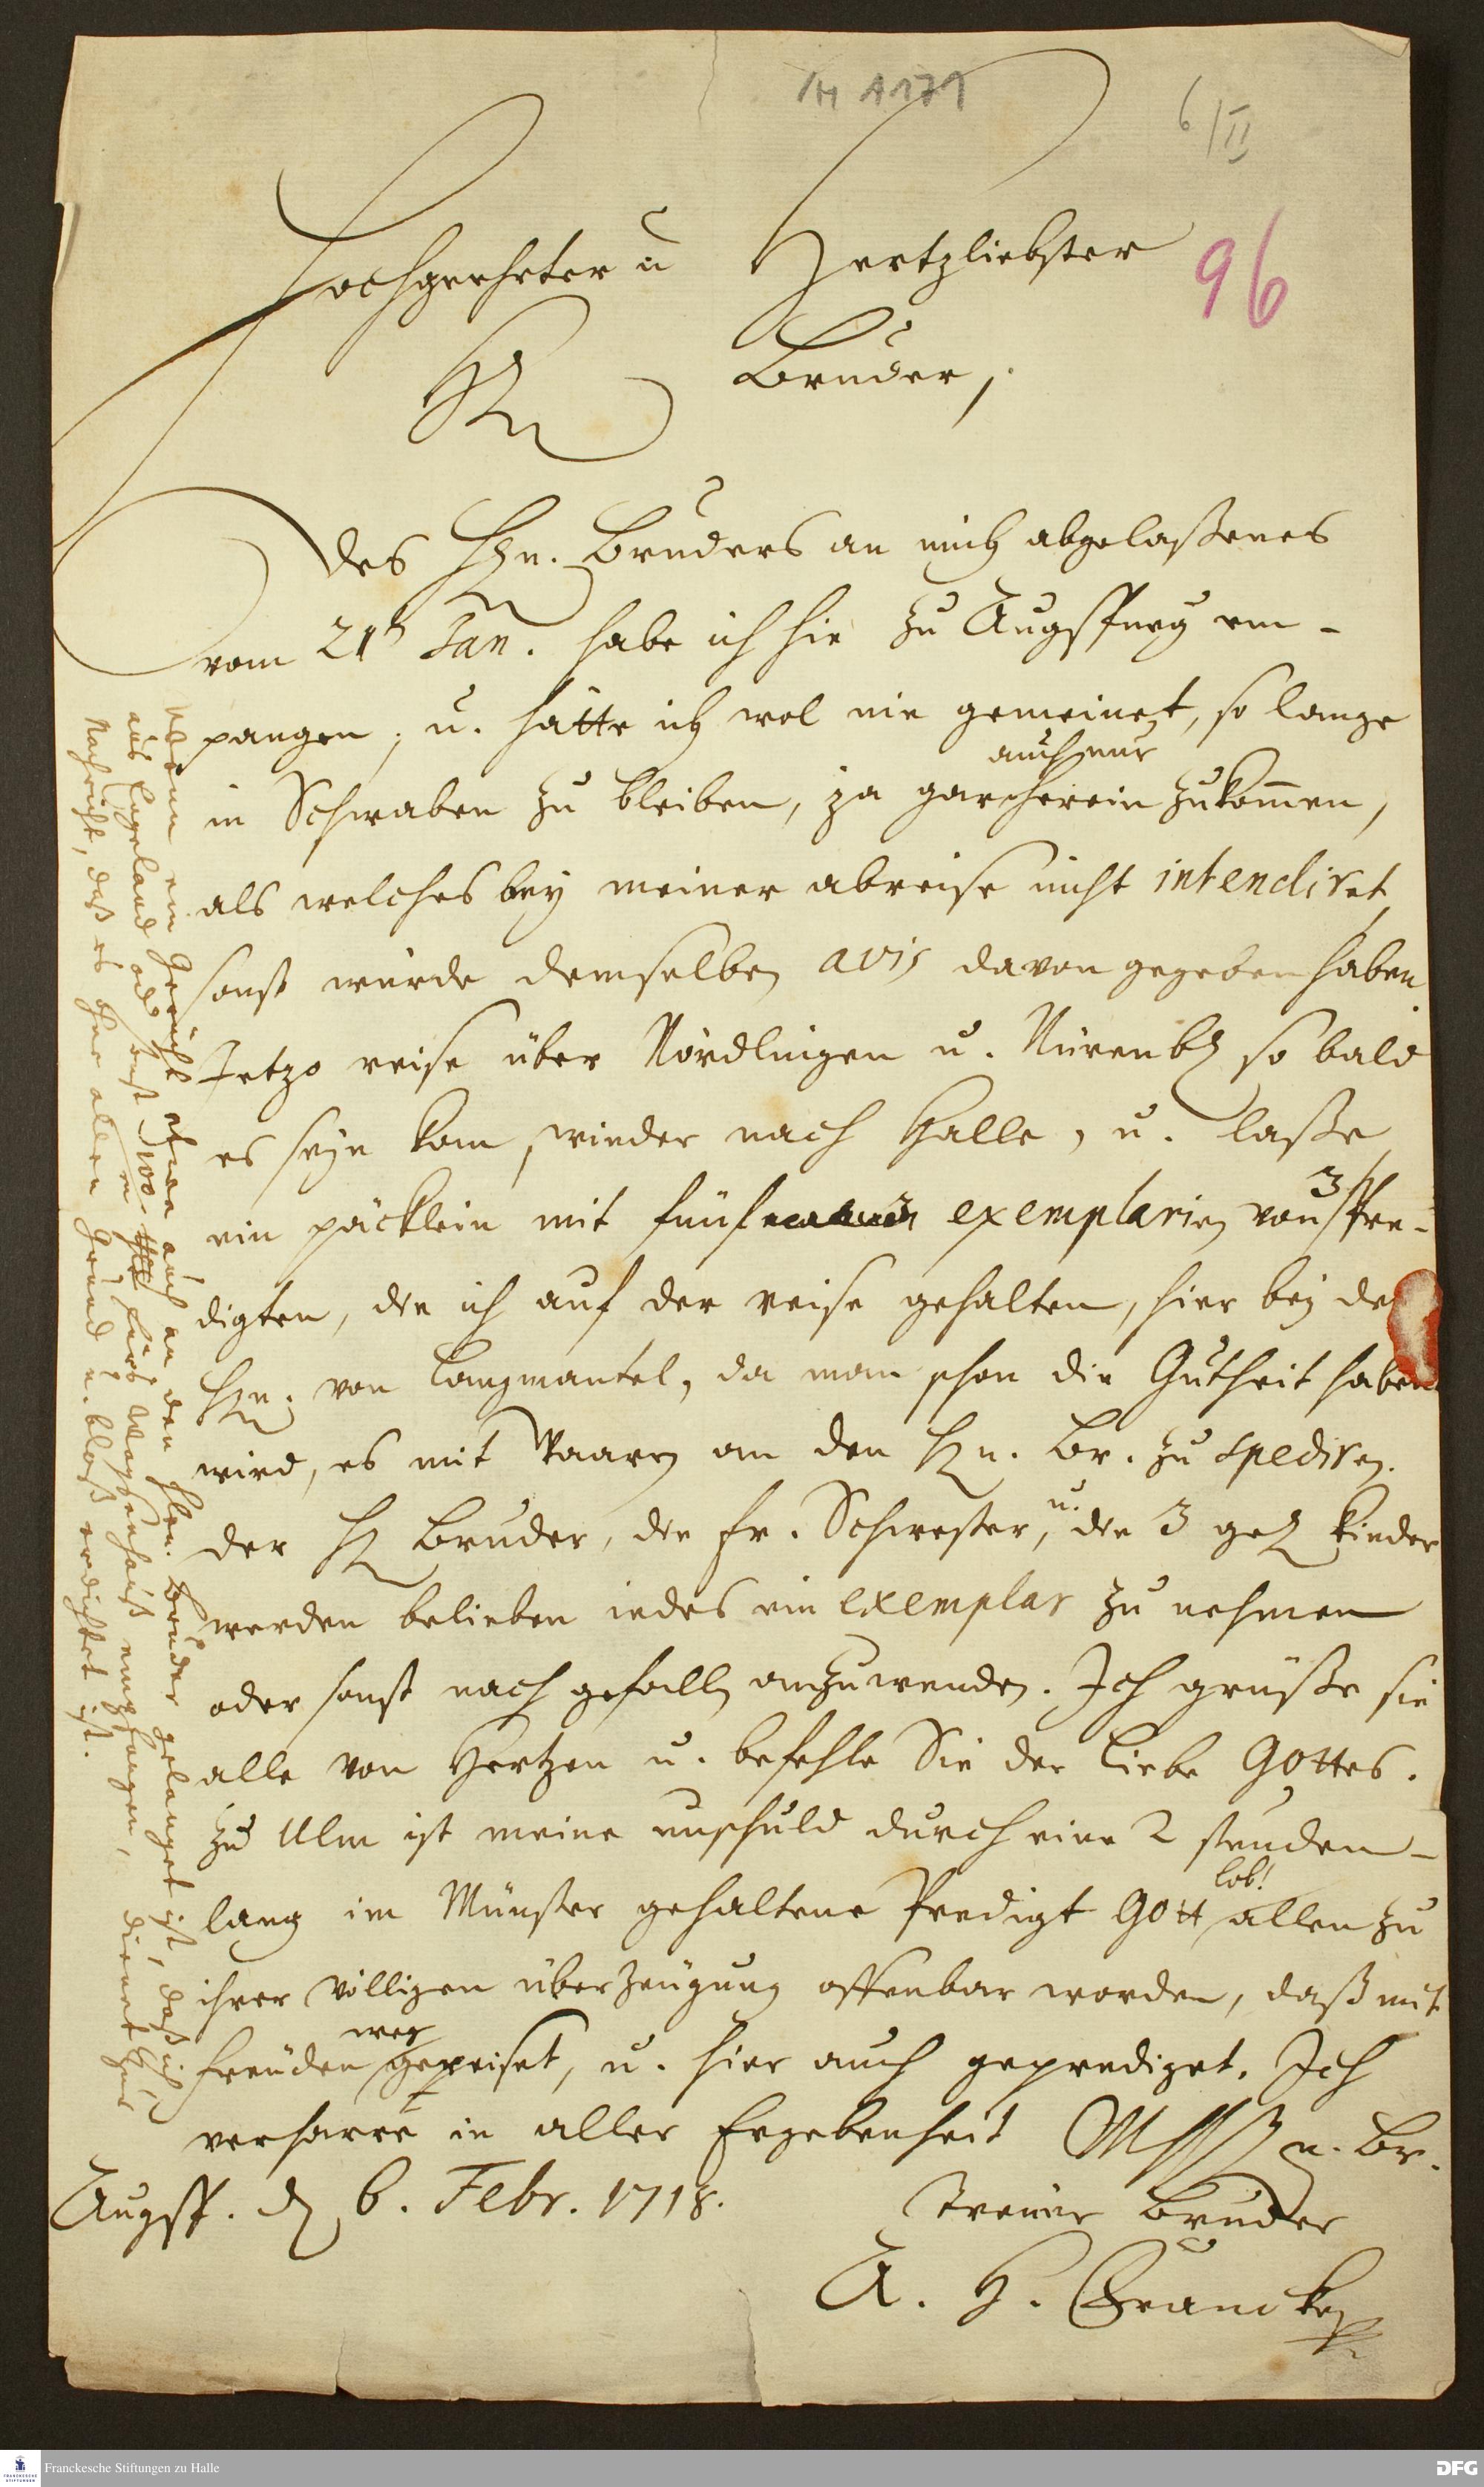 1H A171
6/II
96
Hochgeehrter u Hertzliebster
Hr Bruder,
des Hrn. Bruders an mich abgelaßenes
vom 21t Jan. habe ich hie zu Augspurg em-
pangen, u. hätte ich wol nie gemeinet, so lange
auch nur
in Schwaben zu bleiben, ja gar herein zukom̄en,
als welches bey meiner abreise nicht intendiret,
sonst würde demselben avis davon gegeben haben.
Jetzo reise über Nördlingen u. Nürenb so bald
es seyn kan, wieder nach Halle, u. laße
ein päcklein mit fünf exemplarien von 3 Pre-
digten, die ich auf der reise gehalten, hier bey de
Hrn. von Langmantel, da man schon die Gutheit haben
wird, es mit Waaren an den Hrn. Br. zu spediren.
der Hr Bruder, die fr. Schwester, u. die 3 gel kinder
werden belieben iedes ein exemplar zu nehmen
oder sonst nach gefallen anzuwenden. Ich grüße sie
alle von Hertzen u. befehle Sie der Liebe Gottes.
Zu Ulm ist meine unschuld durch eine 2 stunden-
lang im Münster gehaltene Predigt Gott lob! allen zu
ihrer völligen überzeugung offenbar worden, daß mit
freuden weg gereiset, u. hier auch geprediget. Ich
verharre in aller Ergebenheit n. Br.
Augsp. d 6. Febr. 1718.
treuer Bruder
A. H. Francke
Wenn ein Gerücht etwa auch an den Hrn. Bruder gelanget ist, daß ich
aus Engeland od sonst 100 m fürs Waysenhauß empfangen, dienet zur
Nachricht, daß es ohne allen Grund u. bloß erdichtet ist.
Franckesche Stiftungen zu Halle
DFG